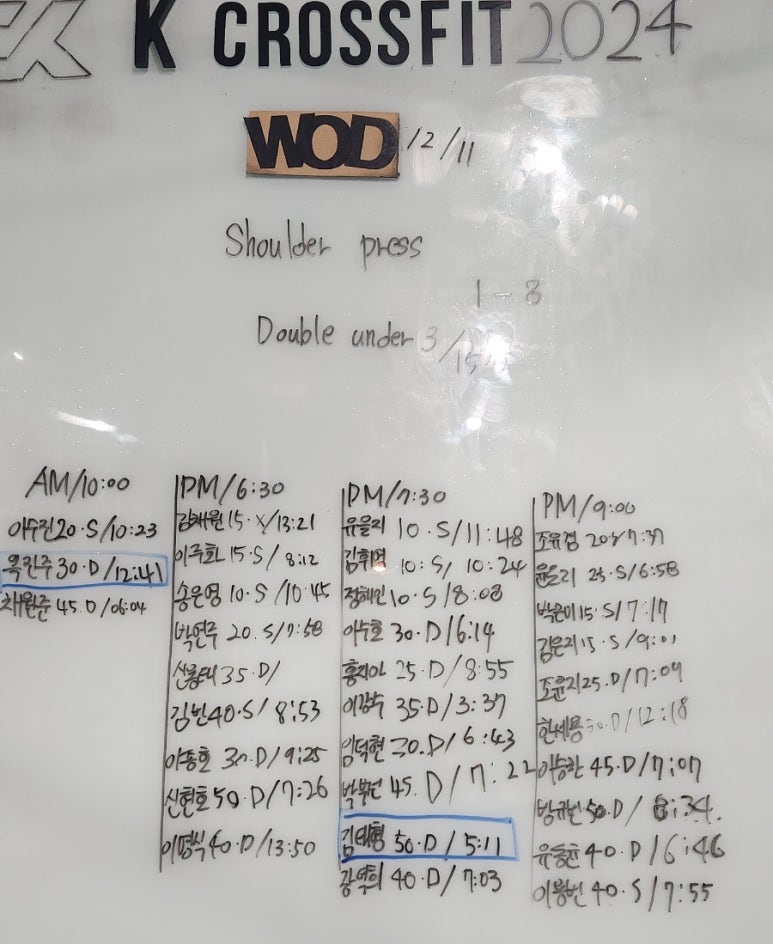 K CROSSFIT 2024
WOD 12/11
Shoulder press
1-8
Double under 3/15
AM/10:00
이수진 20·S/10:23
옥진주 30·D/12:41
채원준 45·D/06:04
PM/6:30
김채원 15·X/13:21
이주화 15·S/8:12
송은영 10·S/10:45
박연주 20·S/7:58
35·D/
김빈 40·S/8:53
이종호 30·D/9:25
신현호 50·D/7:26
이명식 40·D/13:50
PM/7:30
유을지 10·S/11:48
김휘영 10:S/10:24
정혜인 10·S/8:08
이수호 30·D/6:14
홍지아 25·D/8:55
이강욱 35·D/3:37
임덕현 30·D/6:43
45·D/7:22
김태형 50·D/5:11
40·D/7:03
PM/9:00
조유경 20 7:37
윤들리 25·S/6:58
박은미 15·S/7:17
김은지 15·S/9:01
조윤지 25·D/7:09
한세용 50·D/12:18
이승환 45·D/7:07
방규빈 50·D/8:34
유동균 40·D/6:46
이용빈 40·S/7:55